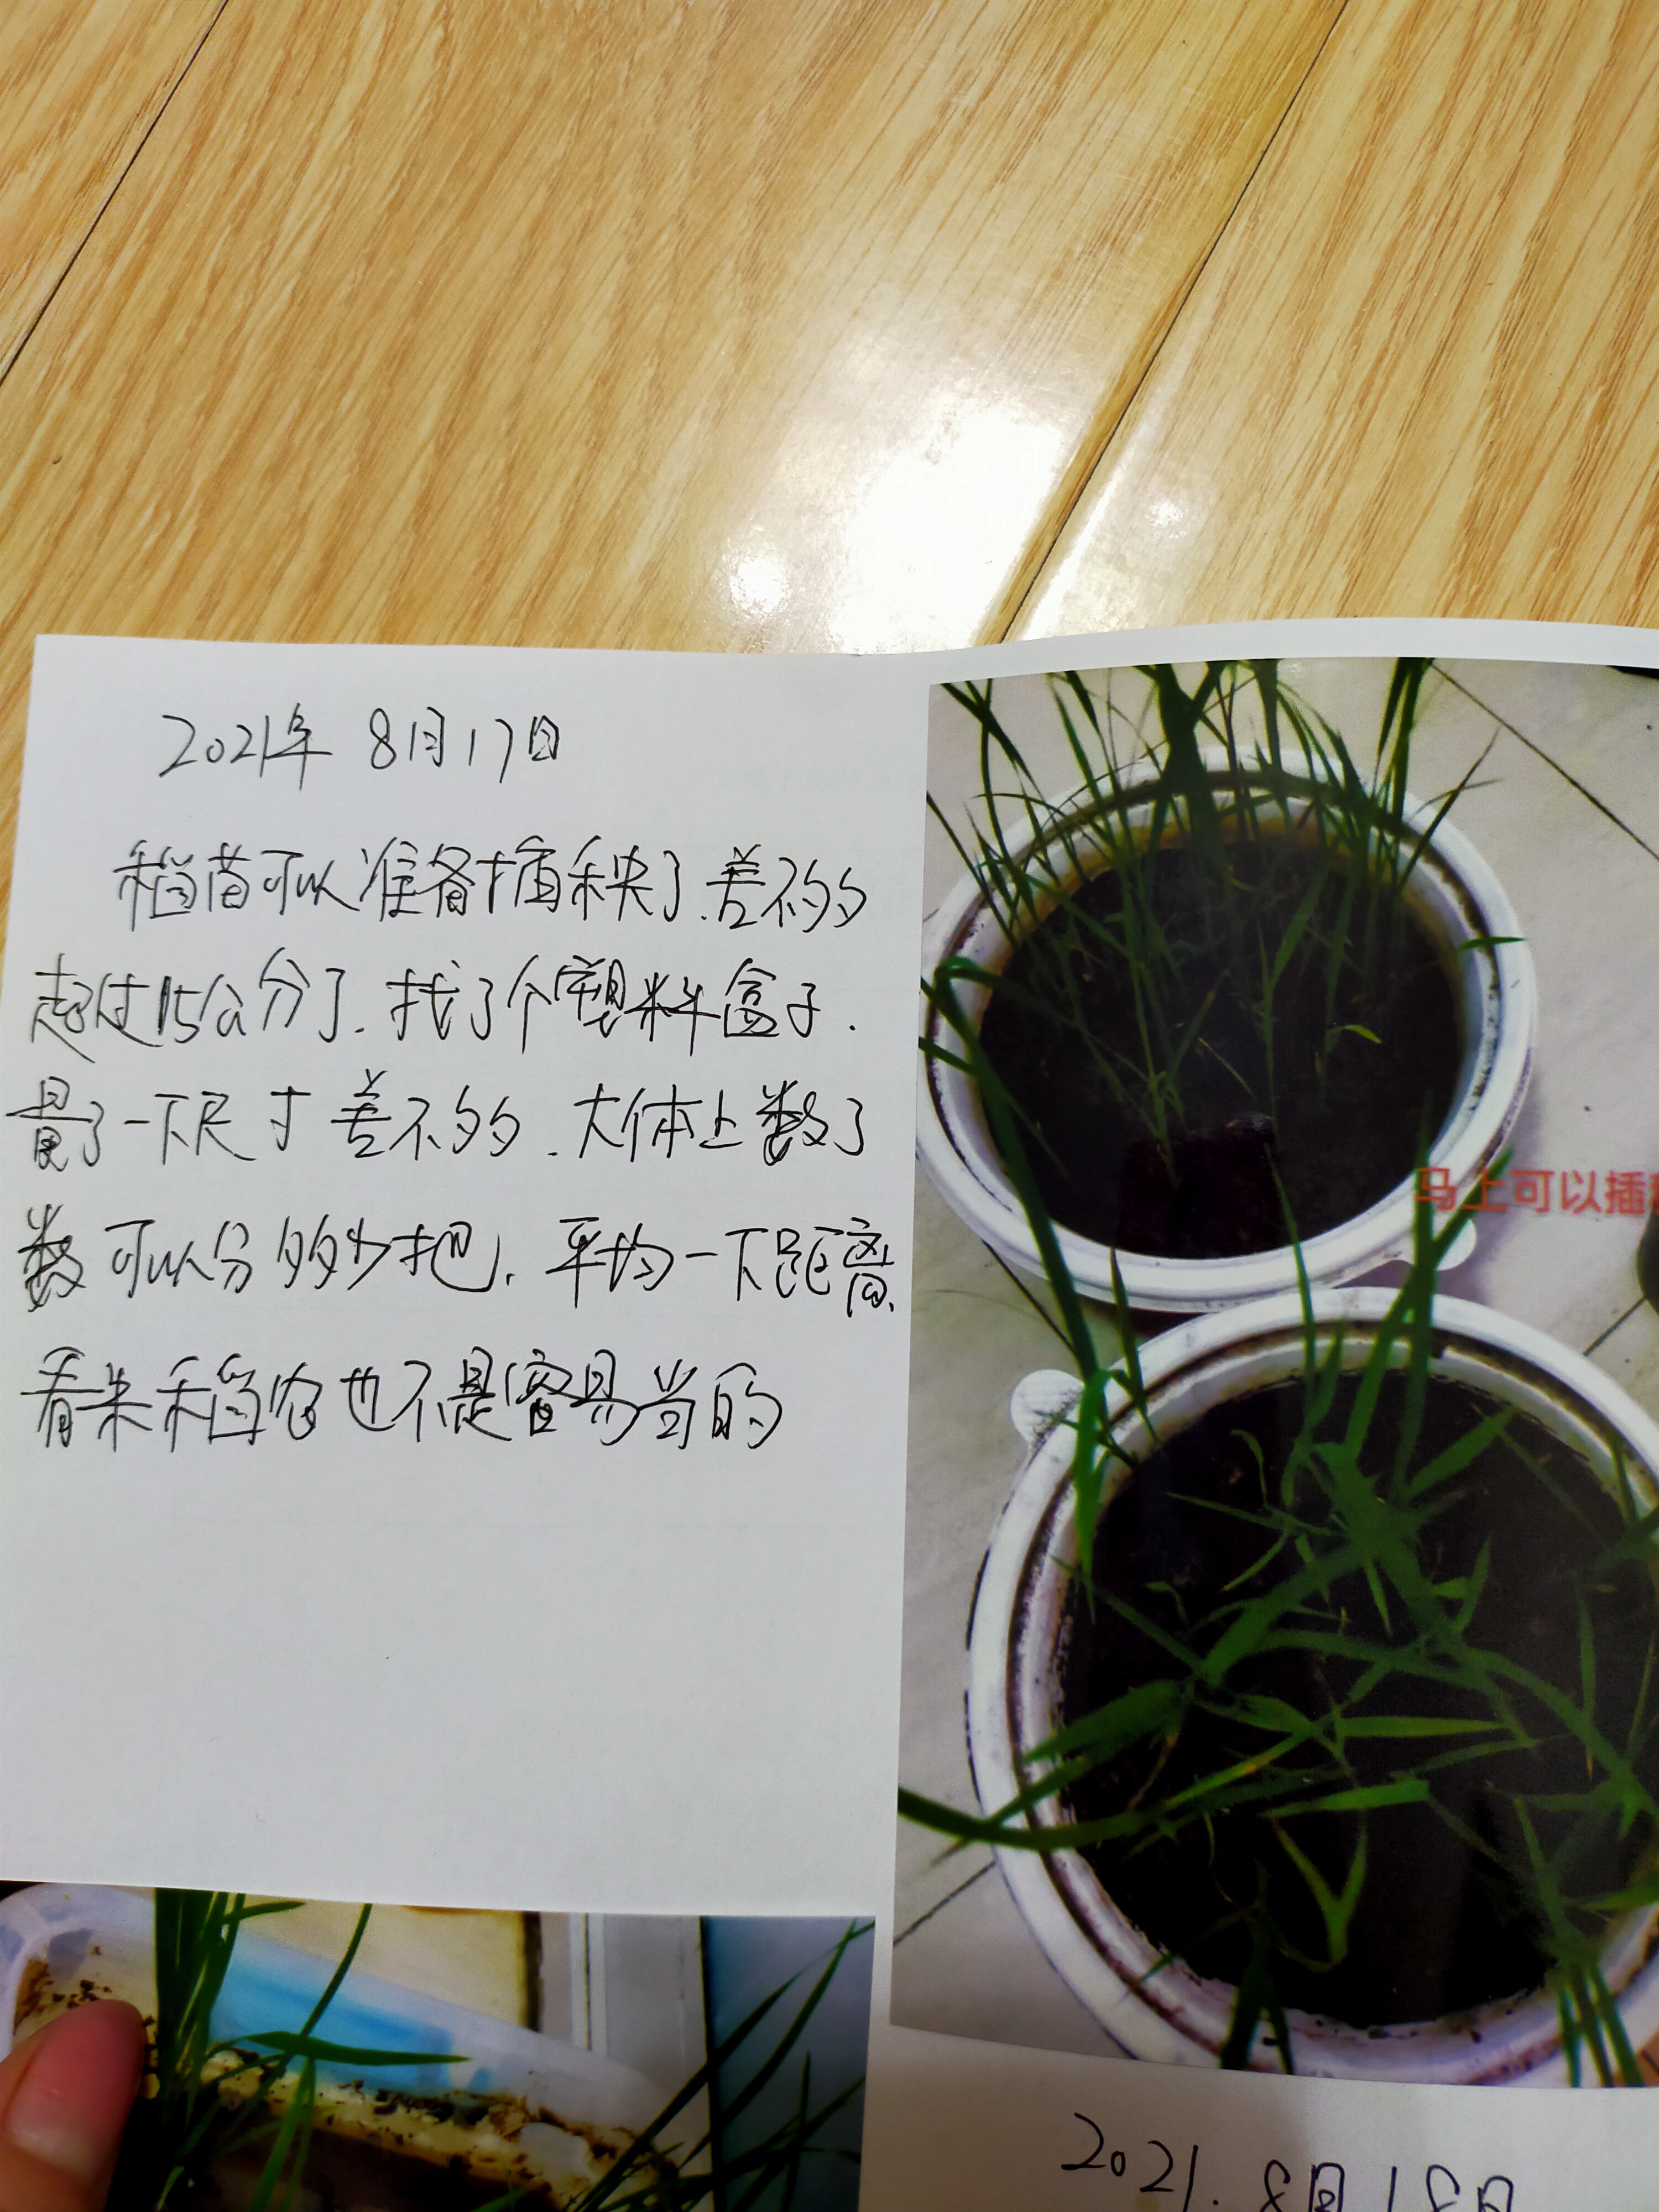 2021年 8月17日
稻苗可以准备插秧了.差不多
超过15公分了.找了个塑料盒子.
量了一下尺寸差不多.大体上数了
数可以分多少把,平均一下距离.
看来稻农也不是容易当的
马上可以插
2021.8月18日